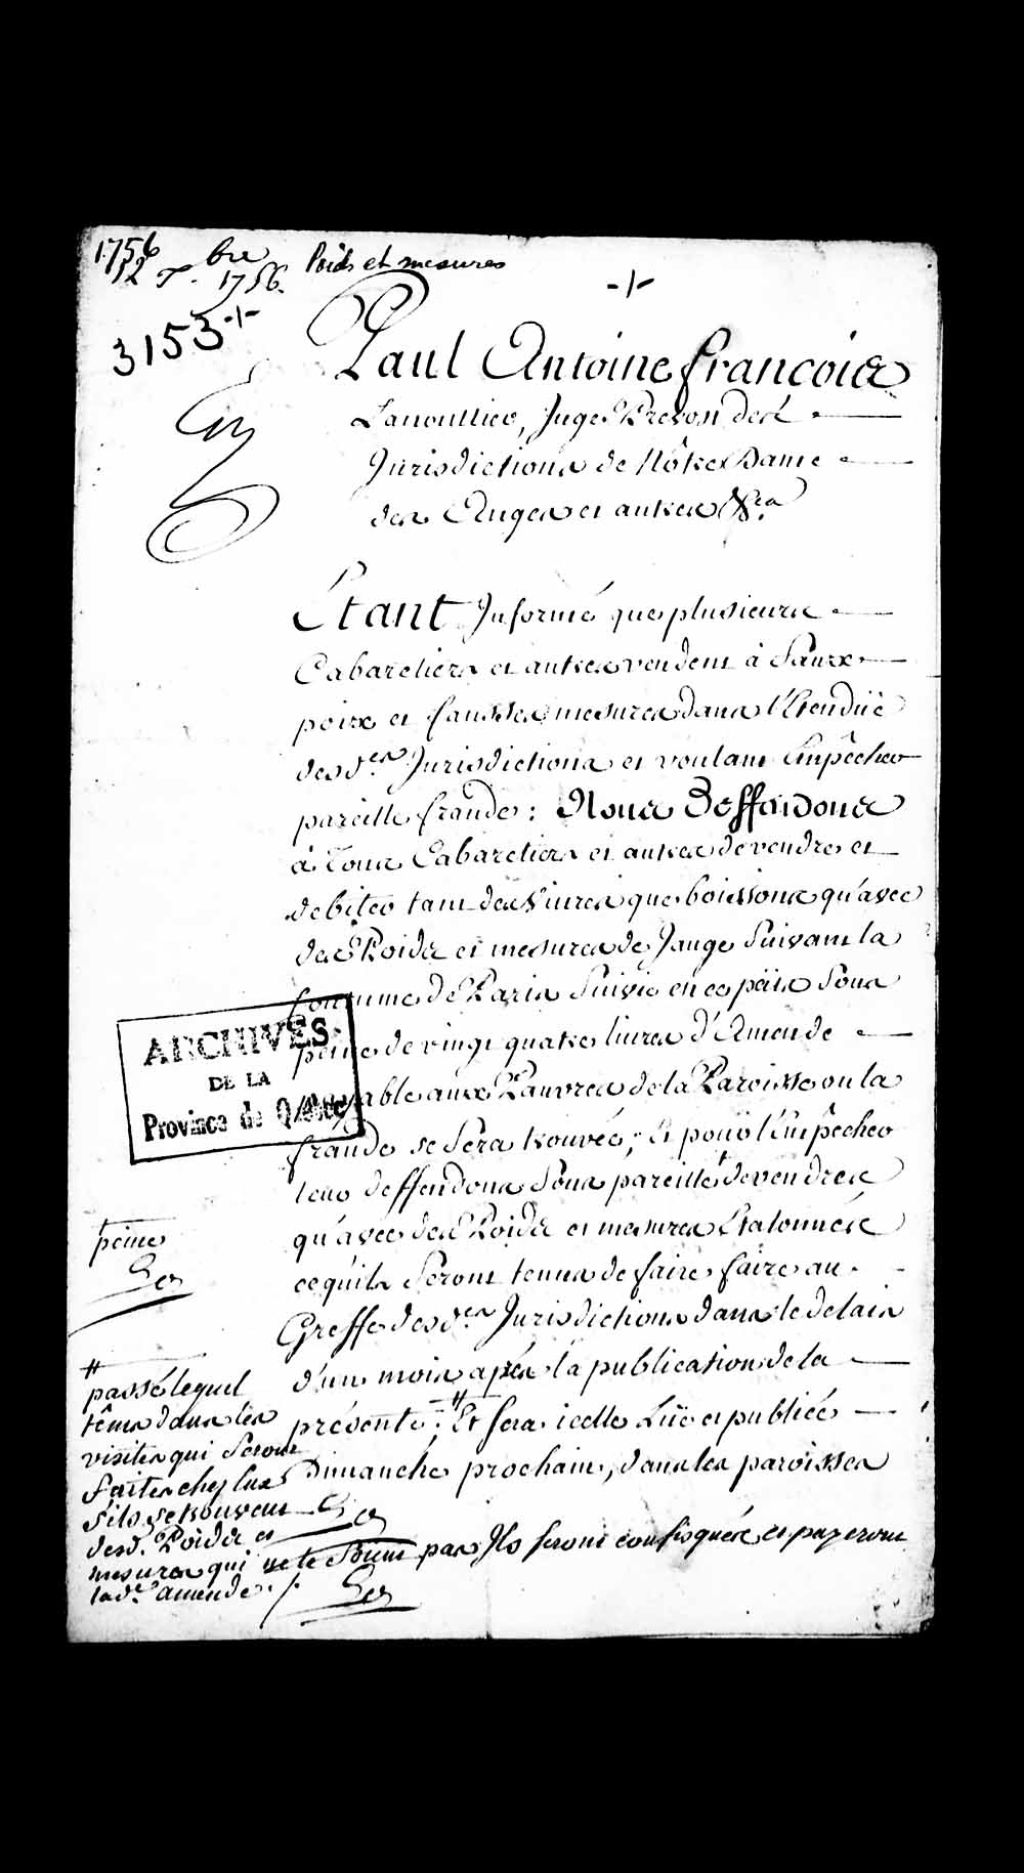 1756
12 7bre 1756. Poids et mesures
3153
Paul Antoine françois
Lanoullier, Juge Prevost des
Jurisdictions de Nôtre Dame
des Anges et autres &ca
Étant Informé que plusieurs
Cabaretiers et autres vendent à faux
poix et fausses mesures dans l'Etenduë
desd.es Jurisdictions et voulant Empêcher
pareille fraude : Nous Deffendons
à Tous Cabaretiers et autres de vendre et
debiter tant des Vivres que boissons qu'avec
des Poids et mesures de Jauge suivant la
Coutume de Paris suivie en ce païs sous
peine de vingt quatre livres d'Amende
payable aux Pauvres de la Paroisse ou la
fraude se sera trouvée ; Et pour l'Empêcher
leur deffendons sous pareille de vendre
qu'avec des Poids et mesures Etalonnés
ce quils seront tenus de faire faire au
Greffe desd.es Jurisdictions dans le delais
d'un mois après la publication de la
présente ; # Et sera icelle Luë et publiée
Dimanche prochain, dans les paroisses
peine
#
passé lequel
têms dans les
visites qui seront
faites chez lux
s'ils se trouvent
desd. Poids et
mesures qui ne le soient pas, Ils seront confisqués et payeront
lad.e amende ./.
ARCHIVES
DE LA
Province de Québec